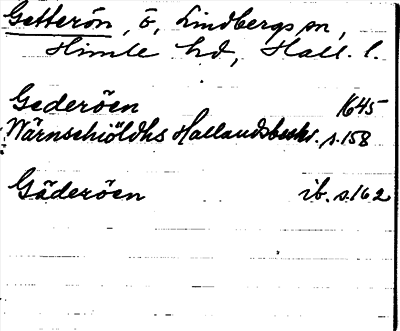 Getterön, ö, Lindbergs sn,
Himle hd, Hall. l.
Gederöen 1645
Wärnschiöldhs Hallandsbeskr. s. 158
Gäderöen ib. s. 162